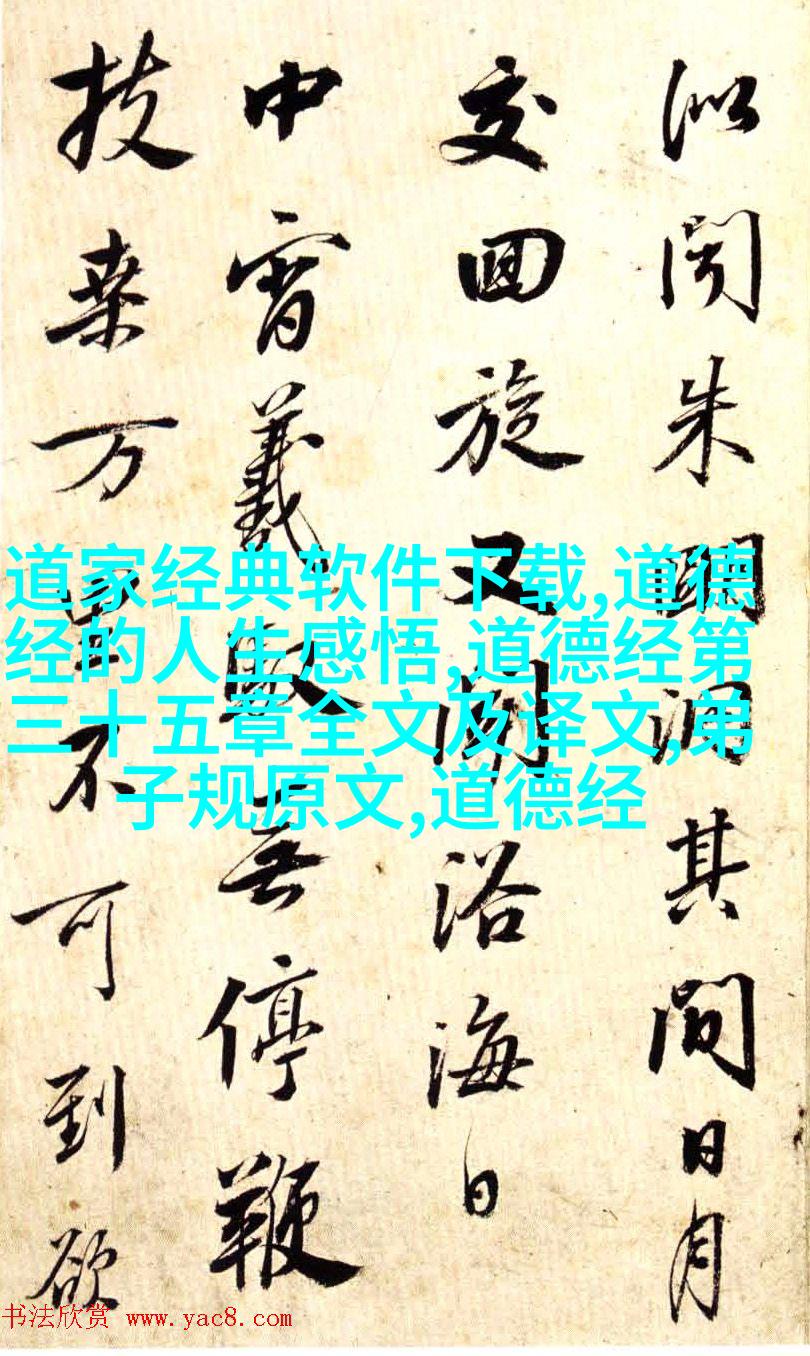 似闻朱明洞其間日月
交囬旋又闻浴海日
中宵羲馭無停鞭
扶桒万里不可到欲
道家经典软件下载,道德
经的人生感悟,道德经第
三十五章全文及译文,弟
子规原文,道德经
书法欣赏 www.yac8.com